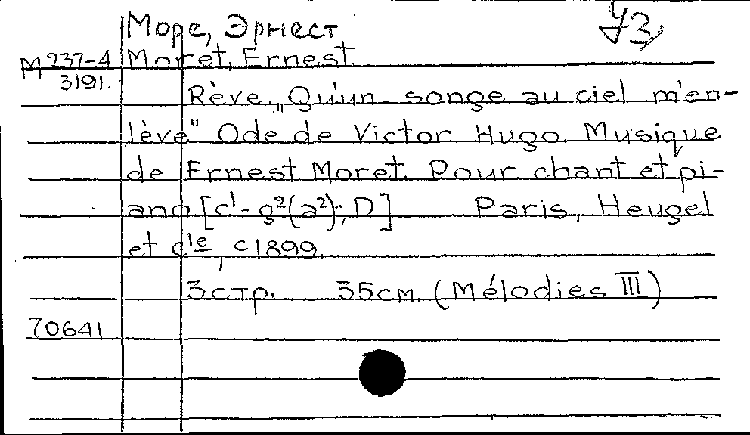 Море, Эрнест УЗ
М 237-4 Moret, Ernest
3191.
Rêve. „Qu'un songe au ciel m'en-
lève" Ode de Victor Hugo. Musique
de Ernest Moret. Pour chant et pi-
ano [c¹-g²(a²); D] Paris, Heugel
et Cie, c1899.
3 стр. 35 см. (Mélodies III)
70641